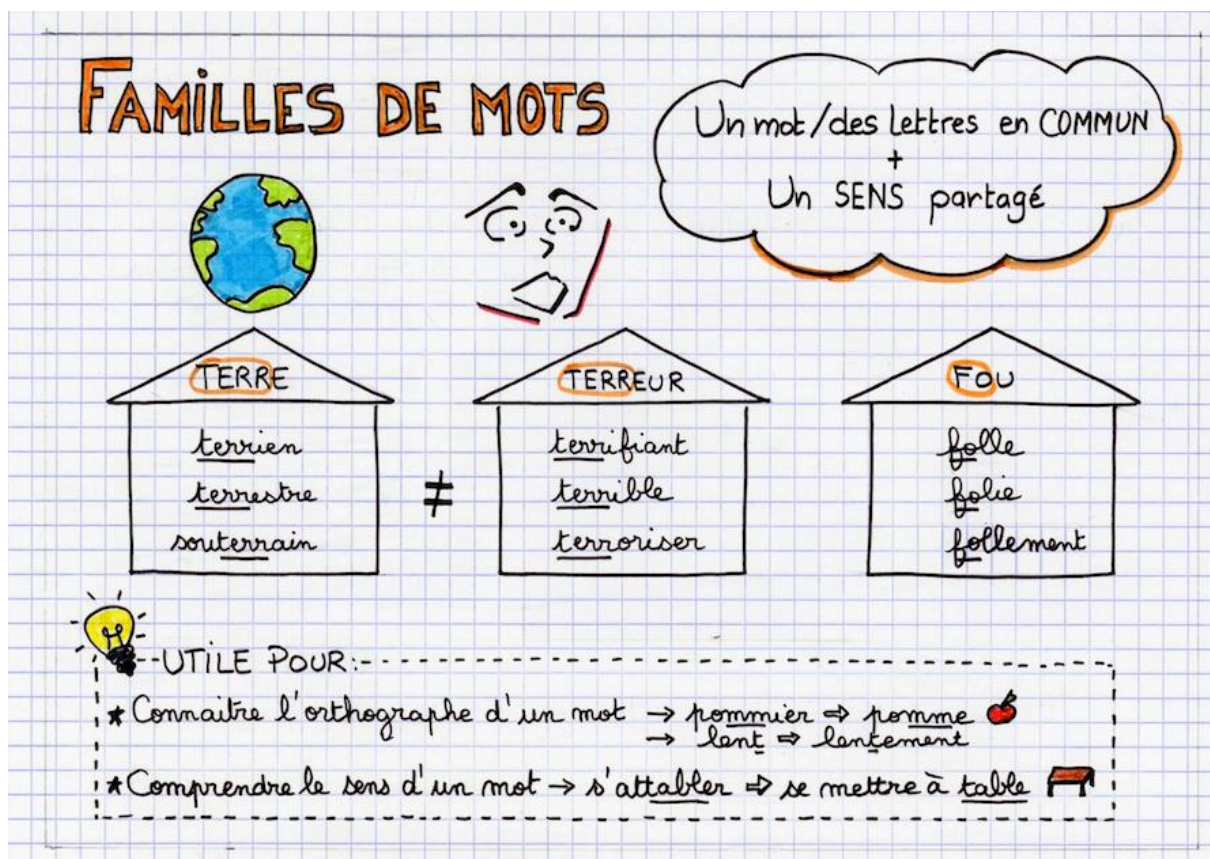 FAMILLES DE MOTS
Un mot/des lettres en COMMUN
+
Un SENS partagé
TERRE
terrien
terrestre
souterrain
≠
TERREUR
terrifiant
terrible
terroriser
FOU
folle
folie
follement
UTILE POUR:
* Connaitre l'orthographe d'un mot → pommier ⇒ pomme
→ lent ⇒ lentement
* Comprendre le sens d'un mot → s'attabler ⇒ se mettre à table